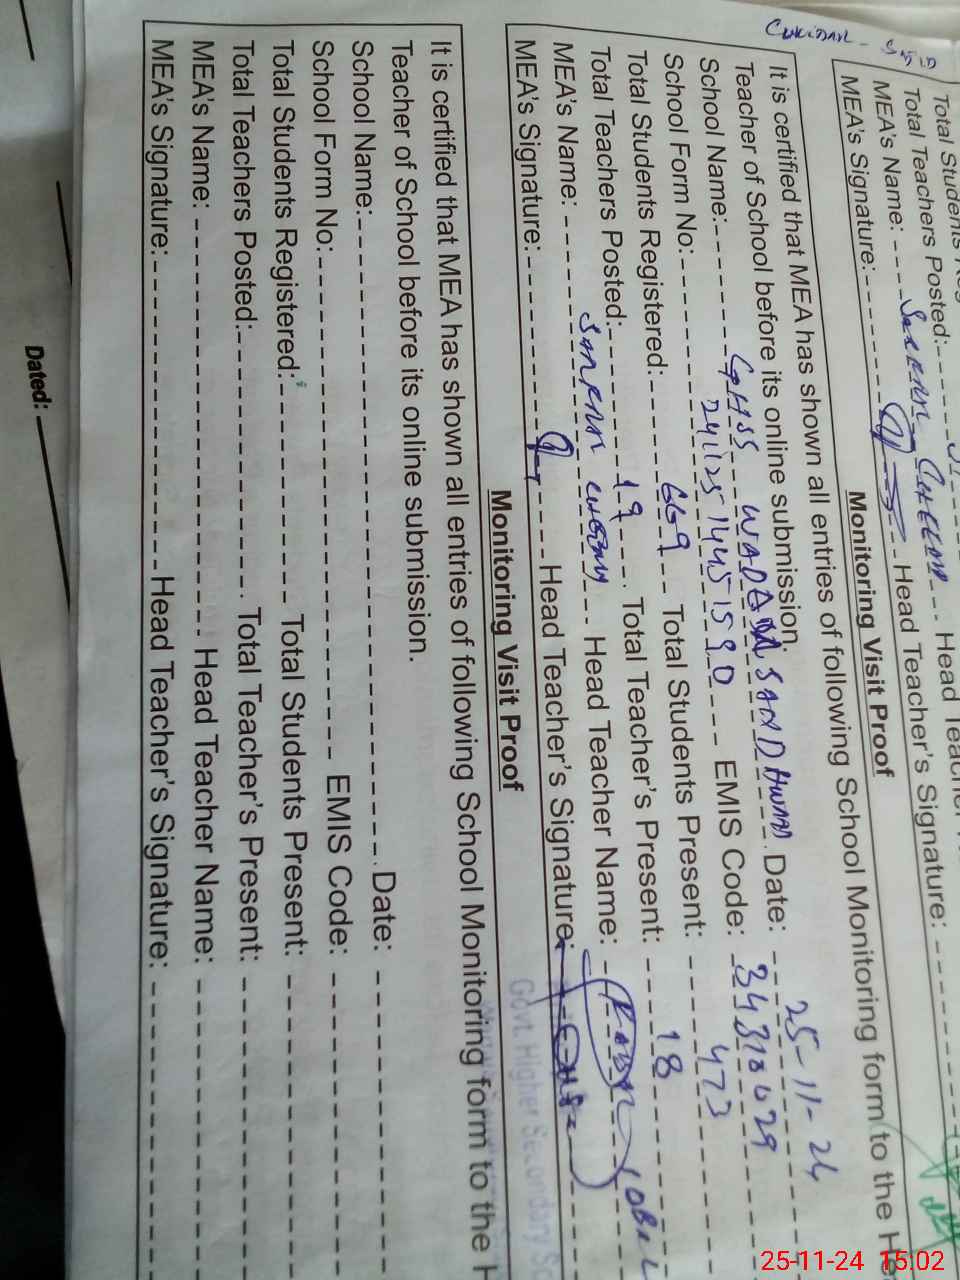 CHKIDAR - SAJID
Total Students Reg
Total Teachers Posted:
MEA's Name: SALEEM CHEEMA Head Teacher
MEA's Signature: Head Teacher's Signature:
Monitoring Visit Proof
It is certified that MEA has shown all entries of following School Monitoring form to the He
Teacher of School before its online submission.
School Name: GHSS WADALA SANDHWAN Date: 25-11-24
School Form No: 241125144515 90 EMIS Code: 34310029
Total Students Registered: 669 Total Students Present: 473
Total Teachers Posted: 19 Total Teacher's Present: 18
MEA's Name: SALEEM CHEEMA Head Teacher Name:
MEA's Signature: Head Teacher's Signature:
Govt. Higher Secondary Sc
Monitoring Visit Proof
It is certified that MEA has shown all entries of following School Monitoring form to the H
Teacher of School before its online submission.
School Name: Date:
School Form No: EMIS Code:
Total Students Registered: Total Students Present:
Total Teachers Posted: Total Teacher's Present:
MEA's Name: Head Teacher Name:
MEA's Signature: Head Teacher's Signature:
Dated:
25-11-24 15:02